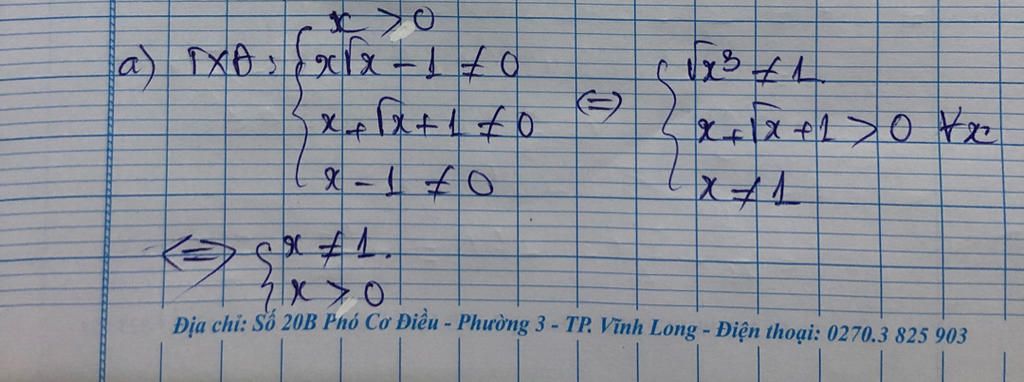 x > 0
a) TXĐ: { x√x - 1 ≠ 0
x + √x + 1 ≠ 0
x - 1 ≠ 0
<=> { √x³ ≠ 1
x + √x + 1 > 0 ∀x
x ≠ 1
<=> { x ≠ 1.
x > 0
Địa chỉ: Số 20B Phó Cơ Điều - Phường 3 - TP. Vĩnh Long - Điện thoại: 0270.3 825 903